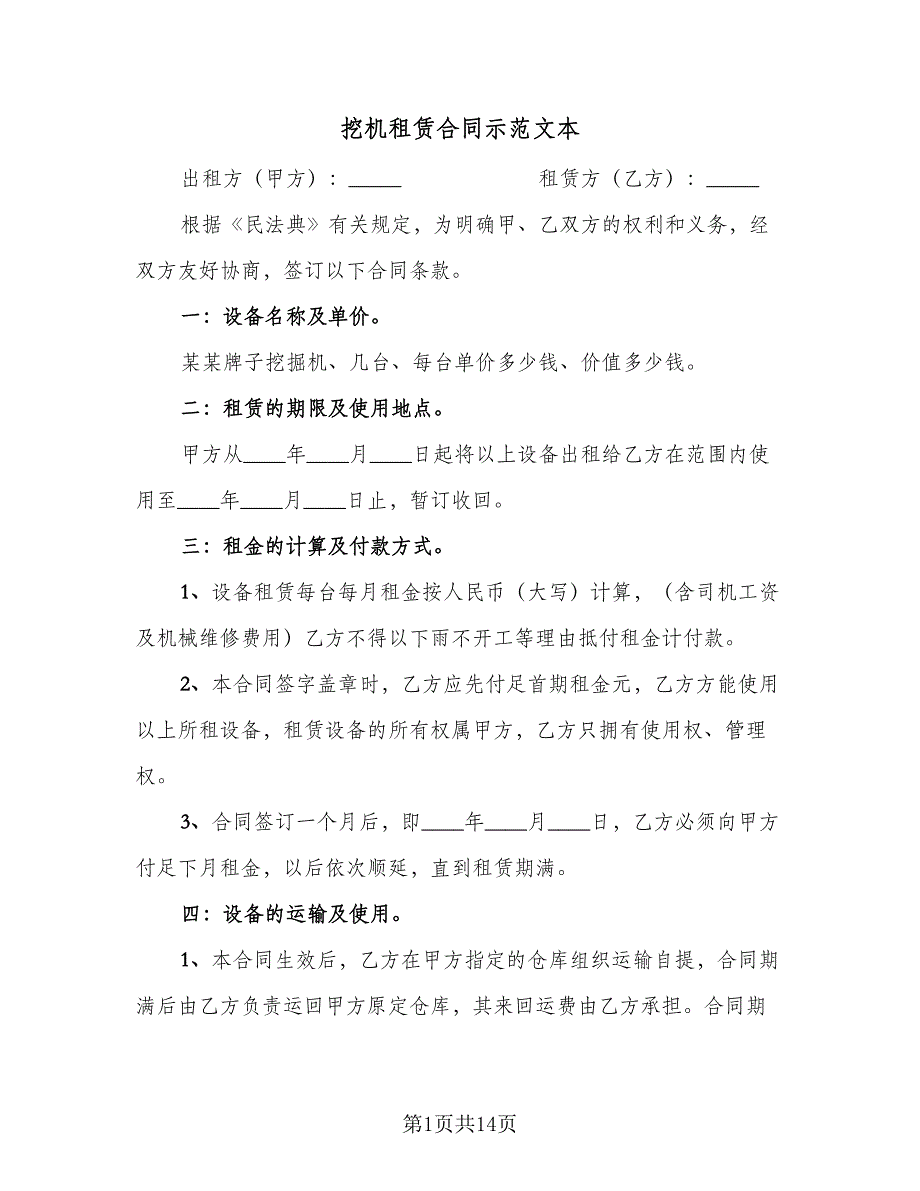 挖机租赁合同示范文本
出租方（甲方）：_____ 租赁方（乙方）：_____
根据《民法典》有关规定，为明确甲、乙双方的权利和义务，经
双方友好协商，签订以下合同条款。
一：设备名称及单价。
某某牌子挖掘机、几台、每台单价多少钱、价值多少钱。
二：租赁的期限及使用地点。
甲方从____年____月____日起将以上设备出租给乙方在范围内使
用至____年____月____日止，暂订收回。
三：租金的计算及付款方式。
1、设备租赁每台每月租金按人民币（大写）计算，（含司机工资
及机械维修费用）乙方不得以下雨不开工等理由抵付租金计付款。
2、本合同签字盖章时，乙方应先付足首期租金元，乙方方能使用
以上所租设备，租赁设备的所有权属甲方，乙方只拥有使用权、管理
权。
3、合同签订一个月后，即____年____月____日，乙方必须向甲方
付足下月租金，以后依次顺延，直到租赁期满。
四：设备的运输及使用。
1、本合同生效后，乙方在甲方指定的仓库组织运输自提，合同期
满后由乙方负责运回甲方原定仓库，其来回运费由乙方承担。合同期
第1页共14页